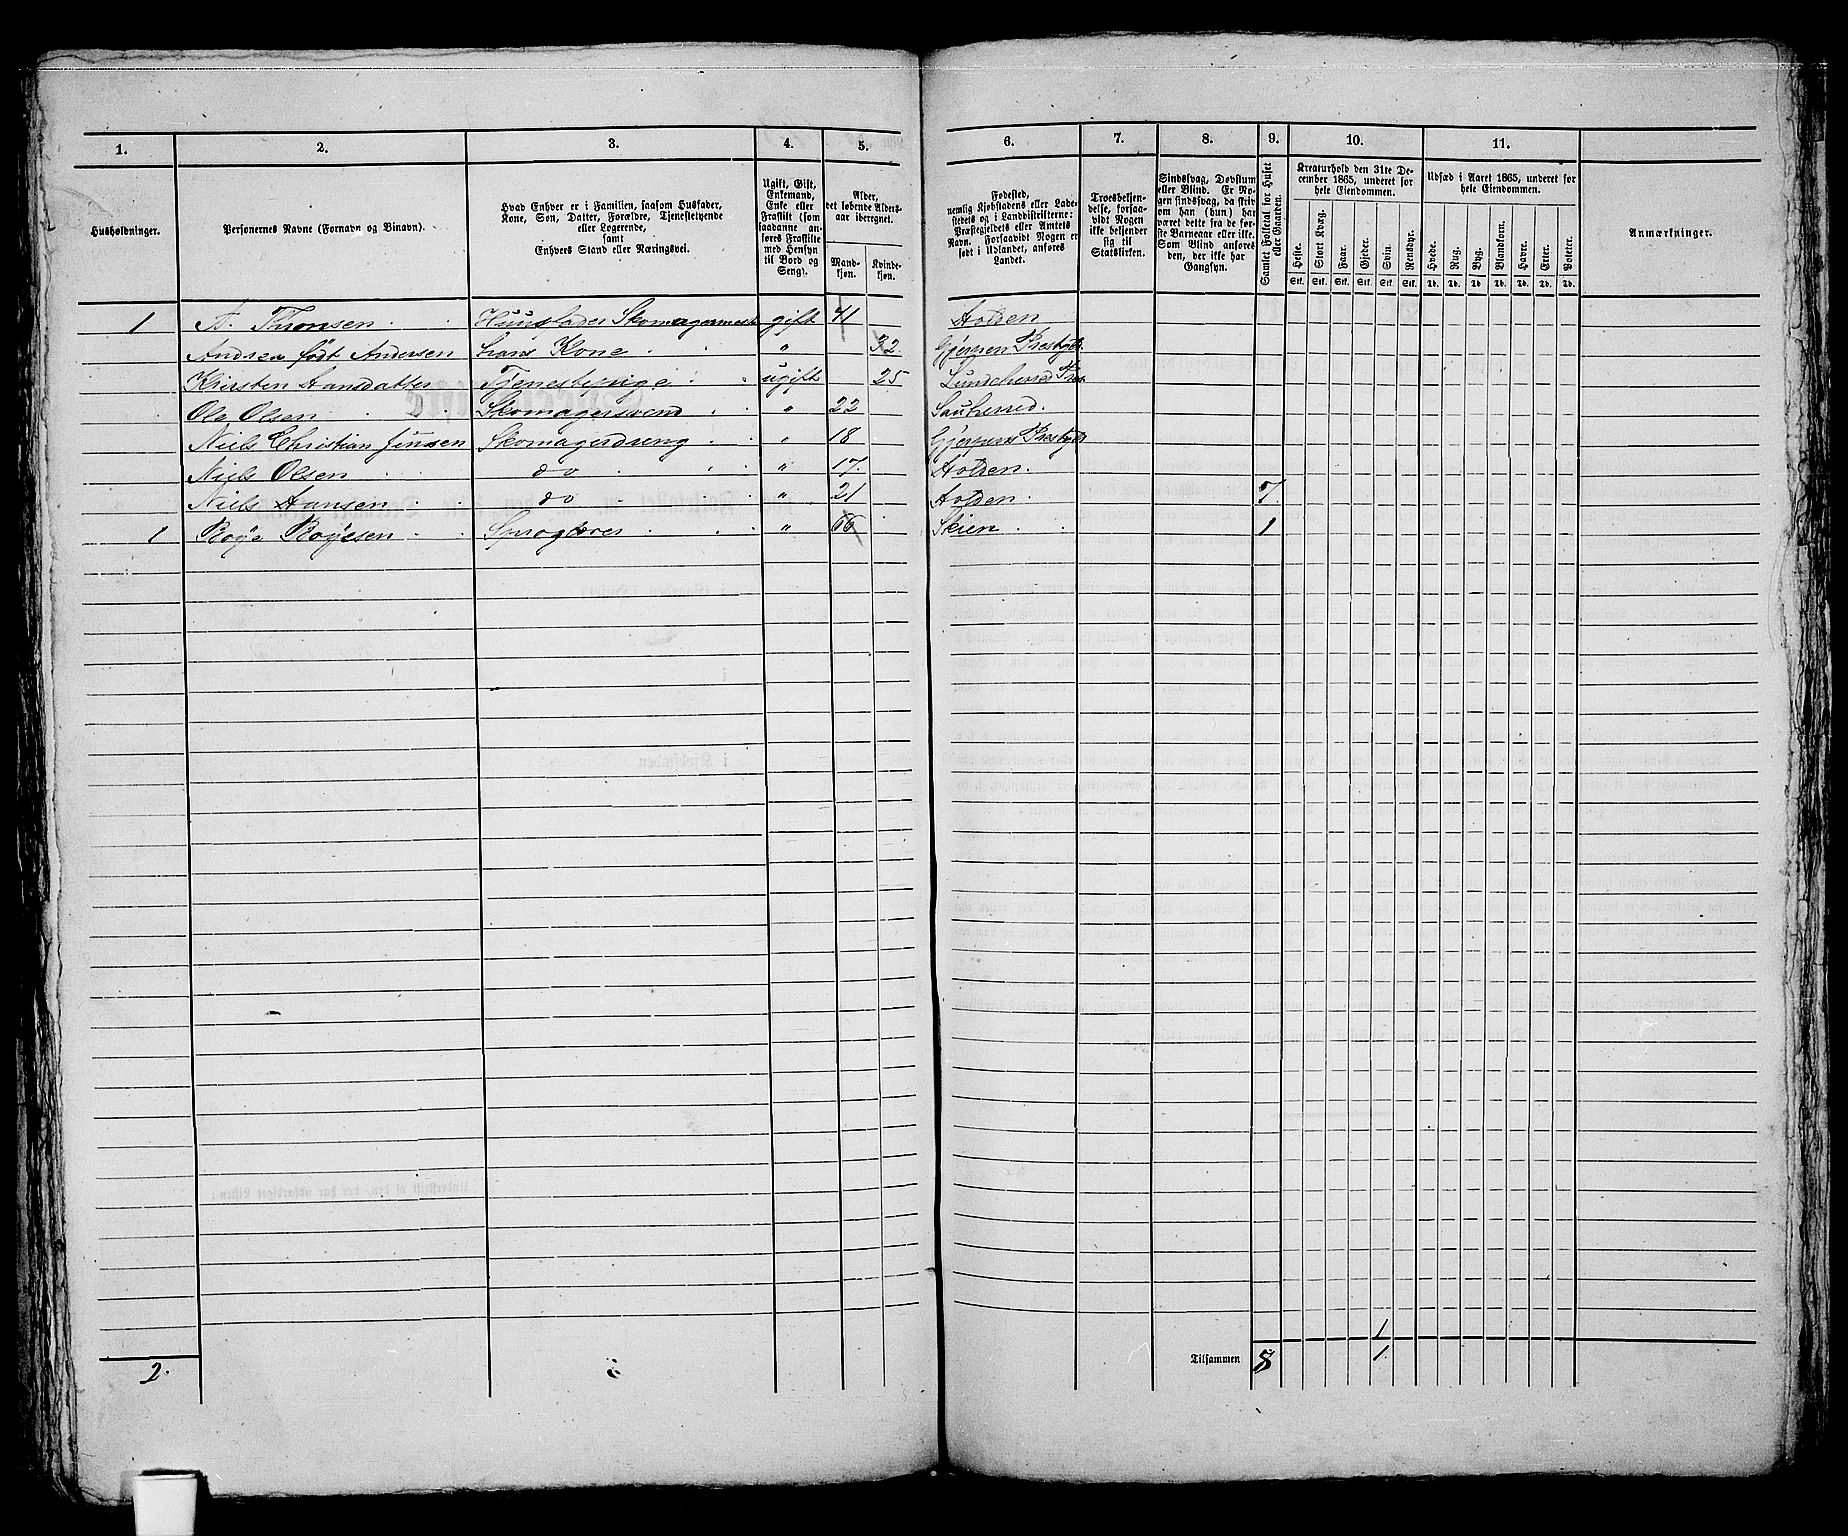 1. 2. 3. 4. 5. 6. 7. 8. 9. 10. 11.
Husholdninger.
Personernes Navne (Fornavn og Binavn).
Hvad Enhver er i Familien, saasom Husfader,
Kone, Søn, Datter, Forældre, Tjenestetyende
eller Logerende,
samt
Enhvers Stand eller Næringsvei.
Ugift, Gift,
Enkemand,
Enke eller
Fraskilt (som
saadanne an-
føres Fraskilte
med Hensyn
til Bord og
Seng).
Alder,
det løbende Alders-
aar iberegnet.
Mand-
kjøn.
Kvinde-
kjøn.
Fødested,
nemlig Kjøbstadens eller Lade-
stedets og i Landdistrikterne:
Præstegjeldets eller Amtets
Navn. Forsaavidt Nogen er
født i Udlandet, anføres
Landet.
Troesbekjen-
delse, forsaa-
vidt Nogen
ikke bekjender
sig til
Statskirken.
Sindssvag, Døvstum
eller Blind. Er No-
gen sindssvag, da skriv
om han (hun) har
været dette fra de før-
ste Barneaar eller ikke.
Som Blind anføres
den, der ikke har
Gangsyn.
Samlet Folketal for Huset
eller Gaarden.
Kreaturhold den 31te De-
cember 1865, underet for
hele Eiendommen.
Heste. Stort Kvæg. Faar. Gjeder. Svin. Rensdyr.
Stk. Stk. Stk. Stk. Stk. Stk.
Udsæd i Aaret 1865, underet for
hele Eiendommen.
Hvede. Rug. Byg. Blandkorn. Havre. Erter. Poteter.
Td. Td. Td. Td. Td. Td. Td.
Anmærkninger.
1 A. Thonsen Huusfader Skomagermest gift 41 Holden
Andrea født Andersen hans Kone " 32. Gjerpen Prestgjl.
Kirsten Hansdatter Tjenestepige ugift 25 Lundeherred Pres
Ole Olsen Skomagersvend " 22 Sauherred.
Niels Christian Jensen Skomagerdreng " 18 Gjerpens Prestgjl
Niels Olsen do " 17. Holden.
Niels Hansen do " 21 Holden 7.
1 Røye Røyesen Sproglærer " 66 Skien 1
1
2. Tilsammen 8 1.